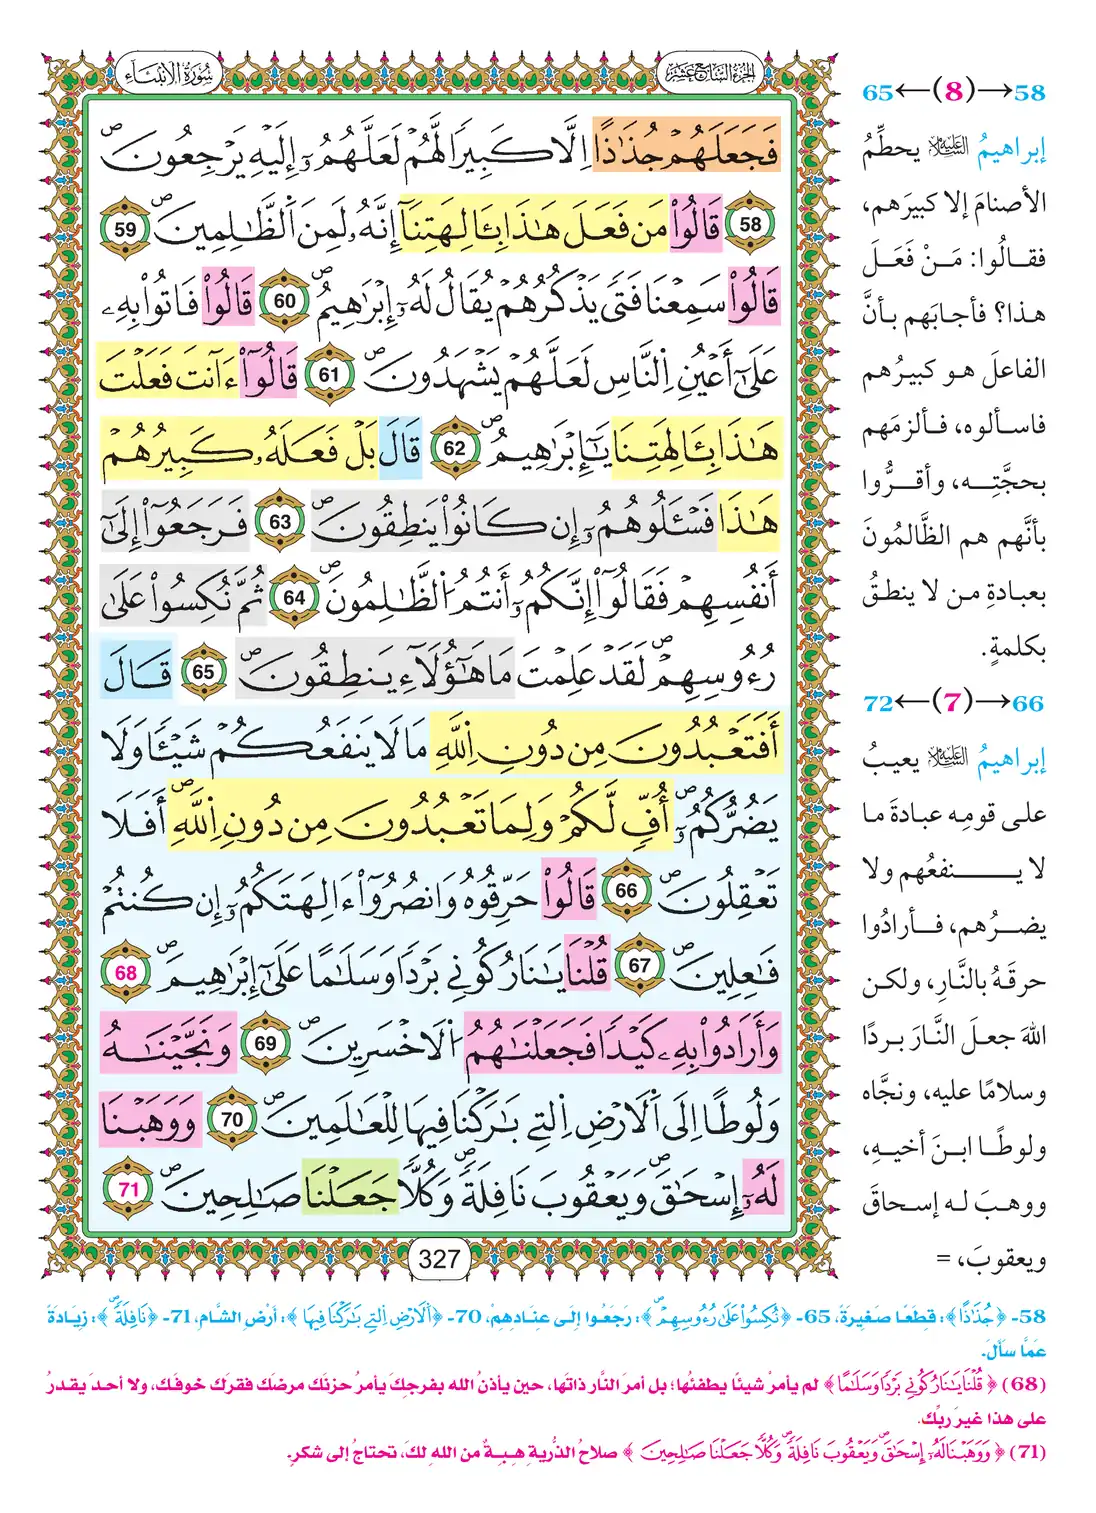 الجزء السابع عشر
سورة الأنبياء
فَجَعَلَهُمْ جُذَٰذًا اِلَّا كَبِيرًا لَّهُمْ لَعَلَّهُمُۥٓ إِلَيْهِ يَرْجِعُونَۖ
58 قَالُوا۟ مَن فَعَلَ هَٰذَا بِـَٔالِهَتِنَآ إِنَّهُۥ لَمِنَ اَ۬لظَّٰلِمِينَۖ 59
قَالُوا۟ سَمِعْنَا فَتًى يَذْكُرُهُمْ يُقَالُ لَهُۥٓ إِبْرَٰهِيمُۖ 60 قَالُوا۟ فَاتُوا۟ بِهِۦ
عَلَىٰٓ أَعْيُنِ اِ۬لنَّاسِ لَعَلَّهُمْ يَشْهَدُونَۖ 61 قَالُوٓا۟ ءَآنتَ فَعَلْتَ
هَٰذَا بِـَٔالِهَتِنَا يَٰٓإِبْرَٰهِيمُۖ 62 قَالَ بَلْ فَعَلَهُۥ كَبِيرُهُمْ
هَٰذَا فَسْـَٔلُوهُمُۥٓ إِن كَانُوا۟ يَنطِقُونَۖ 63 فَرَجَعُوٓا۟ إِلَىٰٓ
أَنفُسِهِمْ فَقَالُوٓا۟ إِنَّكُمُۥٓ أَنتُمُ اُ۬لظَّٰلِمُونَۖ 64 ثُمَّ نُكِسُوا۟ عَلَىٰ
رُءُوسِهِمْۖ لَقَدْ عَلِمْتَ مَا هَٰٓؤُلَآءِ يَنطِقُونَۖ 65 قَالَ
أَفَتَعْبُدُونَ مِن دُونِ اِ۬للَّهِ مَا لَا يَنفَعُكُمْ شَيْـًٔا وَلَا
يَضُرُّكُمُۥٓۖ أُفٍّ لَّكُمْ وَلِمَا تَعْبُدُونَ مِن دُونِ اِ۬للَّهِۖ أَفَلَا
تَعْقِلُونَۖ 66 قَالُوا۟ حَرِّقُوهُ وَانصُرُوٓا۟ ءَالِهَتَكُمُۥٓ إِن كُنتُمْ
فَٰعِلِينَۖ 67 قُلْنَا يَٰنَارُ كُونِي بَرْدًا وَسَلَٰمًا عَلَىٰٓ إِبْرَٰهِيمَۖ 68
وَأَرَادُوا۟ بِهِۦ كَيْدًا فَجَعَلْنَٰهُمُ اُ۬لَاخْسَرِينَۖ 69 وَنَجَّيْنَٰهُ
وَلُوطًا اِلَى اَ۬لَارْضِ اِ۬لتِي بَٰرَكْنَا فِيهَا لِلْعَٰلَمِينَۖ 70 وَوَهَبْنَا
لَهُۥٓ إِسْحَٰقَۖ وَيَعْقُوبَ نَافِلَةًۖ وَكُلًّا جَعَلْنَا صَٰلِحِينَۖ 71
327
58→(8)←65
إبراهيمُ عليه السلام يحطِّمُ
الأصنامَ إلا كبيرَهم،
فقـالُوا: مَـنْ فَعَـلَ
هـذا؟ فأجابَهم بـأنَّ
الفاعلَ هـو كبيـرُهم
فاسـألوه، فـألزمَهم
بحجَّتِـه، وأقـرُّوا
بأنَّهم هم الظَّالمُونَ
بعبـادةِ مـن لا ينطـقُ
بكلمةٍ.
66→(7)←72
إبراهيمُ عليه السلام يعيبُ
علـى قومِه عبادةَ مـا
لا يـنفعُهم ولا
يضـرُهم، فـأرادُوا
حرقَهُ بالنَّارِ، ولكـن
اللهَ جعـلَ النَّـارَ بـردًا
وسلامًا عليه، ونجَّاه
ولوطًـا ابـنَ أخيـهِ،
ووهـبَ لـه إسـحاقَ
ويعقوبَ، =
58- ﴿جُذَٰذًا﴾: قِطَعًا صَغِيرَةً، 65- ﴿نُكِسُوا۟ عَلَىٰ رُءُوسِهِمْۖ﴾: رَجَعُوا إِلَى عِنَادِهِمْ، 70- ﴿اَ۬لَارْضِ اِ۬لتِي بَٰرَكْنَا فِيهَا﴾: أَرْضِ الشَّامِ، 71- ﴿نَافِلَةًۖ﴾: زِيَادَةً
عَمَّا سَأَلَ.
(68) ﴿قُلْنَا يَٰنَارُ كُونِي بَرْدًا وَسَلَٰمًا﴾ لم يأمرْ شيئًا يطفئُها؛ بل أمرَ النَّار ذاتَها، حين يأذنُ الله بفرجِكَ يأمرُ حزنَك مرضَك فقرَك خوفَك، ولا أحدَ يقدرُ
على هذا غيرَ ربِّك.
(71) ﴿وَوَهَبْنَا لَهُۥٓ إِسْحَٰقَۖ وَيَعْقُوبَ نَافِلَةًۖ وَكُلًّا جَعَلْنَا صَٰلِحِينَۖ﴾ صلاحُ الذُّريةِ هِبةٌ من الله لكَ، تحتاجُ إلى شكرِ.